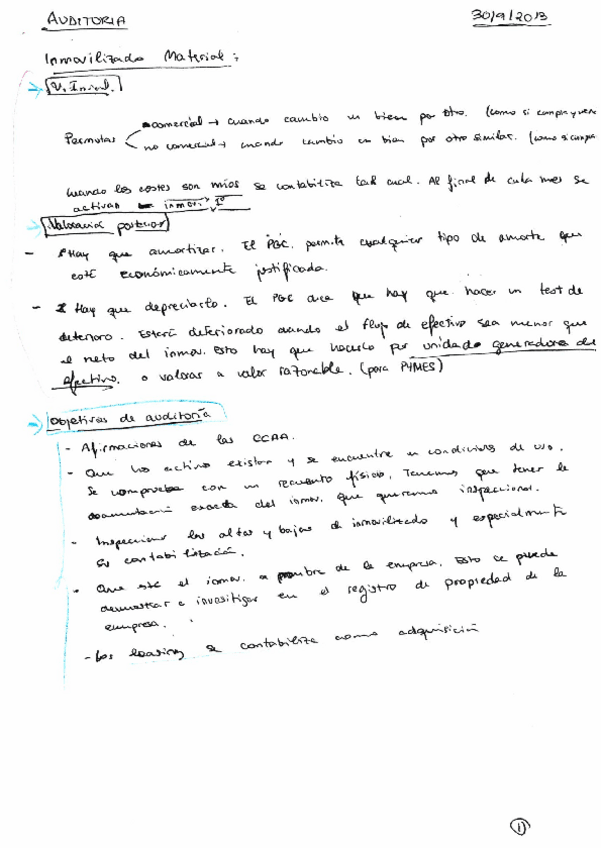 AUDITORIA 30/9/2013
Inmovilizado Material:
V. Inicial.
comercial → cuando cambio un bien por otro. (como si compra y ven
Permutas
no comercial → cuando cambio un bien por otro similar. (como si compra
Cuando los costes son míos se contabiliza tal cual. Al final de cada mes se
activan inmov.
Valoración posterior
- Hay que amortizar. El PGC permite cualquier tipo de amorte que
esté económicamente justificada.
- 2 Hay que depreciarlo. El PGC dice que hay que hacer un test de
deterioro. Estará deteriorado cuando el flujo de efectivo sea menor que
el neto del inmov. Esto hay que hacerlo por unidad generadora de
efectivo. o valorar a valor razonable. (para PYMES)
Objetivos de auditoría
- Afirmaciones de las CCAA.
- Que los activos existan y se encuentre en condiciones de uso.
Se comprueba con un recuento físico. Tenemos que tener la
documentación exacta del inmov. que queremos inspeccionar.
- Inspeccionar las altas y bajas de inmovilizado y especialmente
su contabilización.
- Que esté el inmov. a nombre de la empresa. Esto se puede
demostrar e investigar en el registro de propiedad de la
empresa.
- Los leasing se contabiliza como adquisición
1